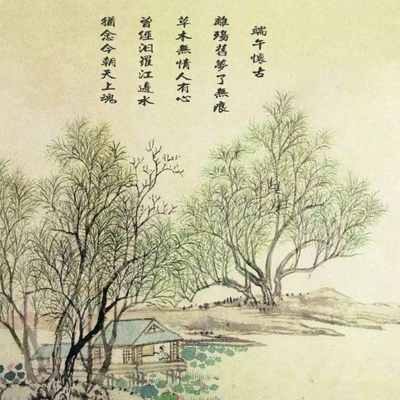 端午懷古
離殤舊夢了無痕
草木無情人有心
曾經汨羅江邊水
猶念今朝天上魂